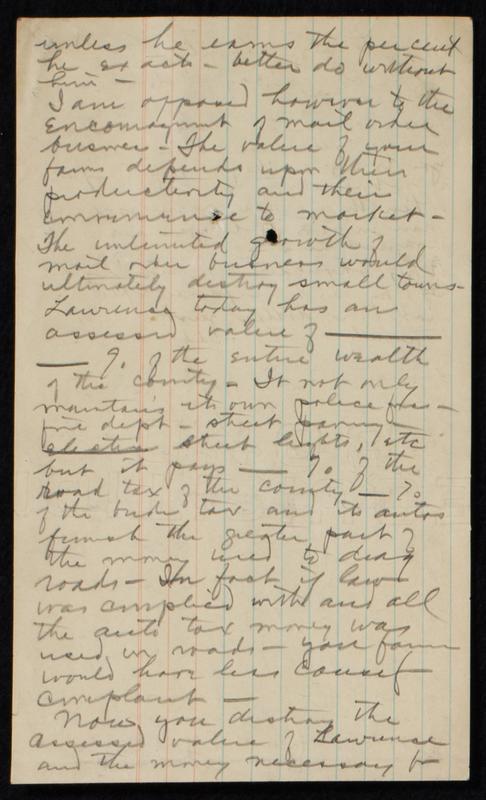 unless he earns the percent
he exacts - better do without
him -
I am opposed however to the
encouragement of mail order
business - The value of your
farms depends upon their
productivity and their
to market -
The unlimited growth of
mail order business would
ultimately destroy small towns -
Lawrence today has an
assessed value of ———
— % of the entire wealth
of the county - It not only
maintains its own police
fire dept - street paving -
electric street lights, etc
but it pays — % of the
road tax of the county — %
of the bridge tax and its autos
furnish the greater part of
the money used to drag
roads - In fact if law
was complied with and all
the auto tax money was
used in roads - you farm
would have less cause of
complaint -
Now you destroy the
assessed value of Lawrence
and the money necessary for